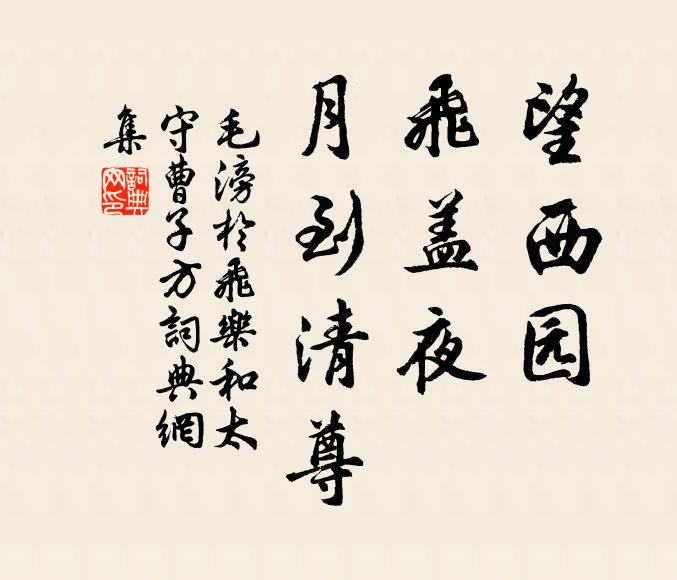 望西园
飛盖夜
月到清尊
毛滂於飛樂和太
守曹子方詞典網
集
詞典
网印